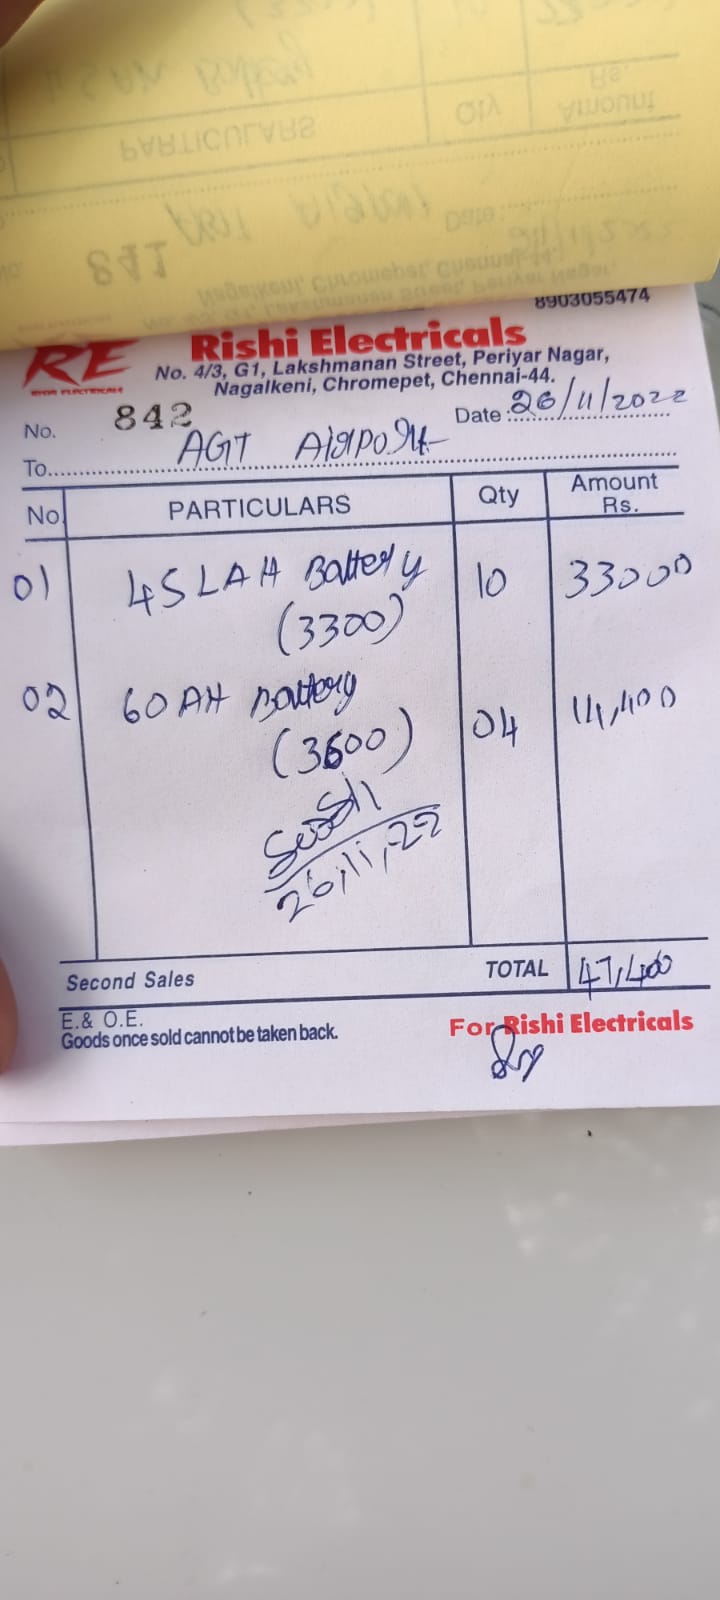 PARTICULARS
Qty
Amount
Rs.
Date :
841
8903055474
RE
RISHI ELECTRICALS
Rishi Electricals
No. 4/3, G1, Lakshmanan Street, Periyar Nagar,
Nagalkeni, Chromepet, Chennai-44.
No. 842
Date : 26/11/2022
To. AGT Airport
No. PARTICULARS Qty Amount Rs.
01 45LAH Battery 10 33000
(3300)
02 60AH Battery 04 14,400
(3600)
26,11,22
Second Sales TOTAL 47,400
E.& O.E.
Goods once sold cannot be taken back.
For Rishi Electricals